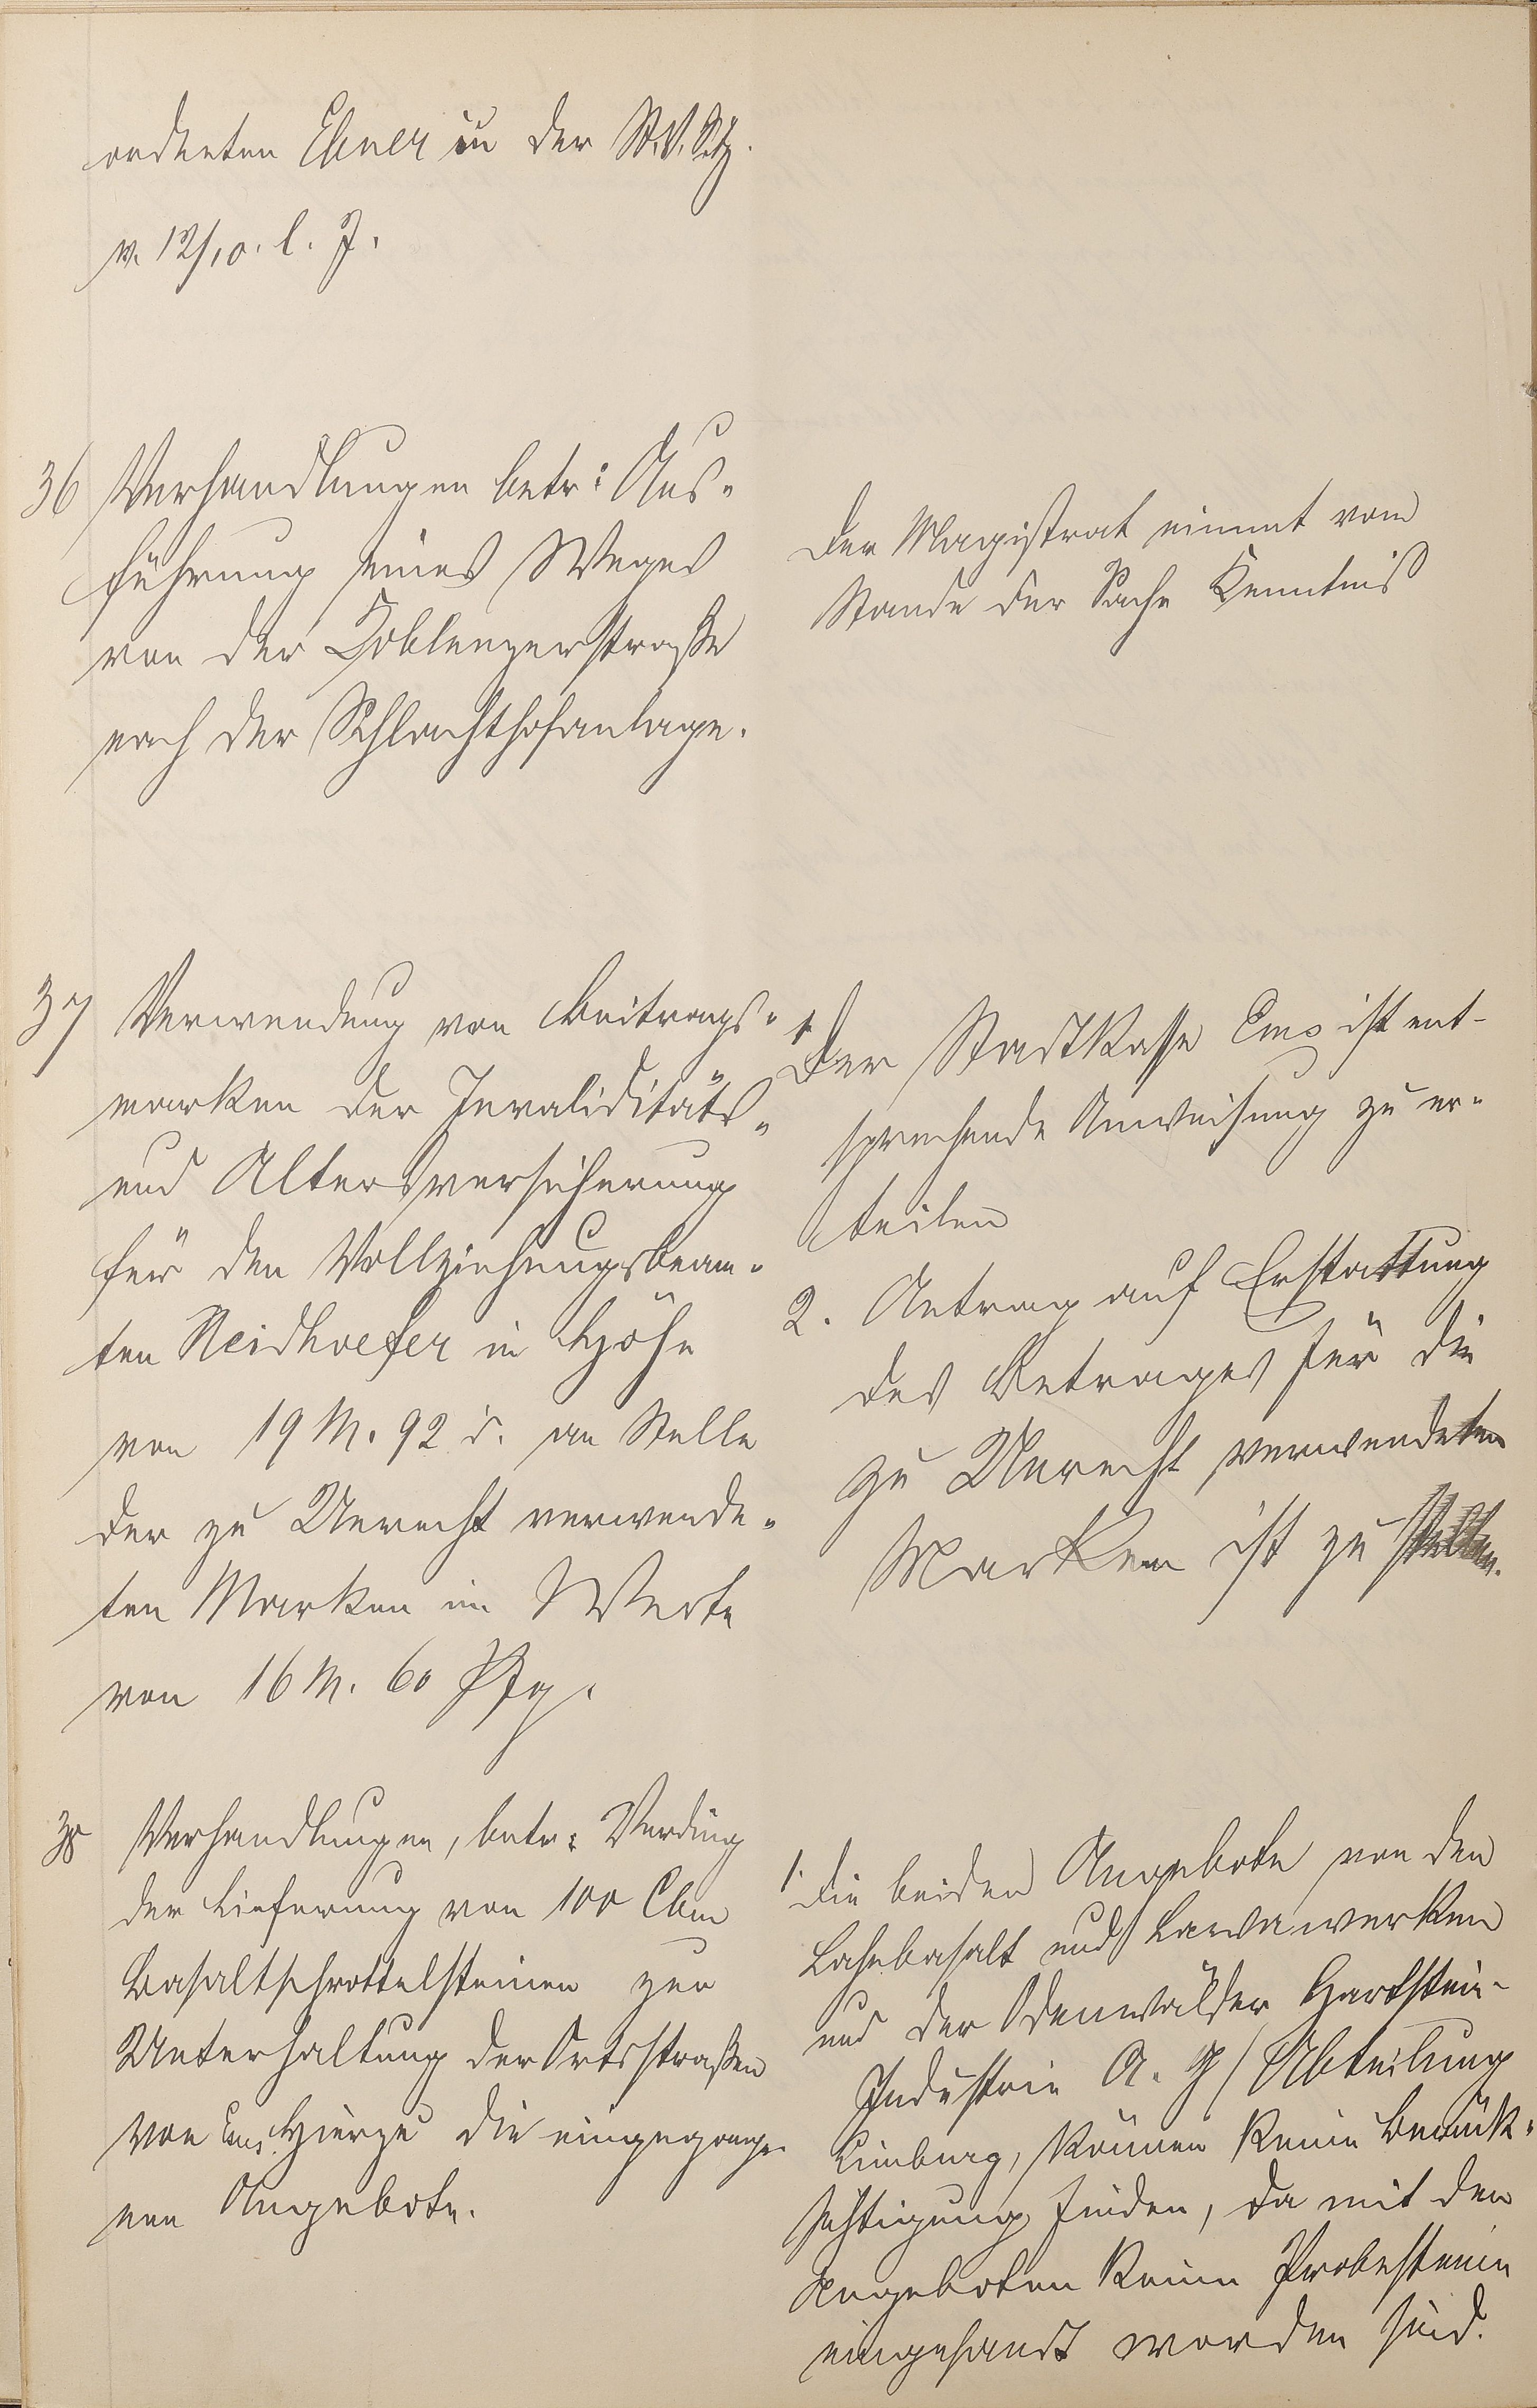 ordneten Ebner in der St.V.Sitz.
v. 12/10. l. J.
36 Verhandlungen betr: Aus-
führung eines Weges
von der Koblenzerstraße
nach der Schlachthofanlage.
Der Magistrat nimmt vom
Stande der Sache Kenntniß
37 Verwendung von Beitrags-
marken der Invaliditäts-
und Altersversicherung
für den Vollziehungsbeam-
ten Neidhoefer in Höhe
von 19 M. 92 d. an Stelle
der zu Unrecht verwende-
ten Marken im Werte
von 16 M. 60 Pfg.
1. Der Stadtkasse Ems ist ent-
sprechende Anweisung zu er-
teilen
2. Antrag auf Erstattung
des Betrages für die
zu Unrecht verwendeten
Marken ist zu stellen.
38 Verhandlungen, betr: Verding
der Lieferung von 100 Cbm
Basaltschrottelsteinen zur
Unterhaltung der Ortsstraßen
von Ems. Hierzu die eingegange-
nen Angebote.
1. Die beiden Angebote von den
Lahnbasalt und Lavawerken
und der Odenwälder Hartstein-
Industrie A. G / Abteilung
Limburg, können keine Berück-
sichtigung finden, da mit den
Angeboten keine Probesteine
eingesandt worden sind.